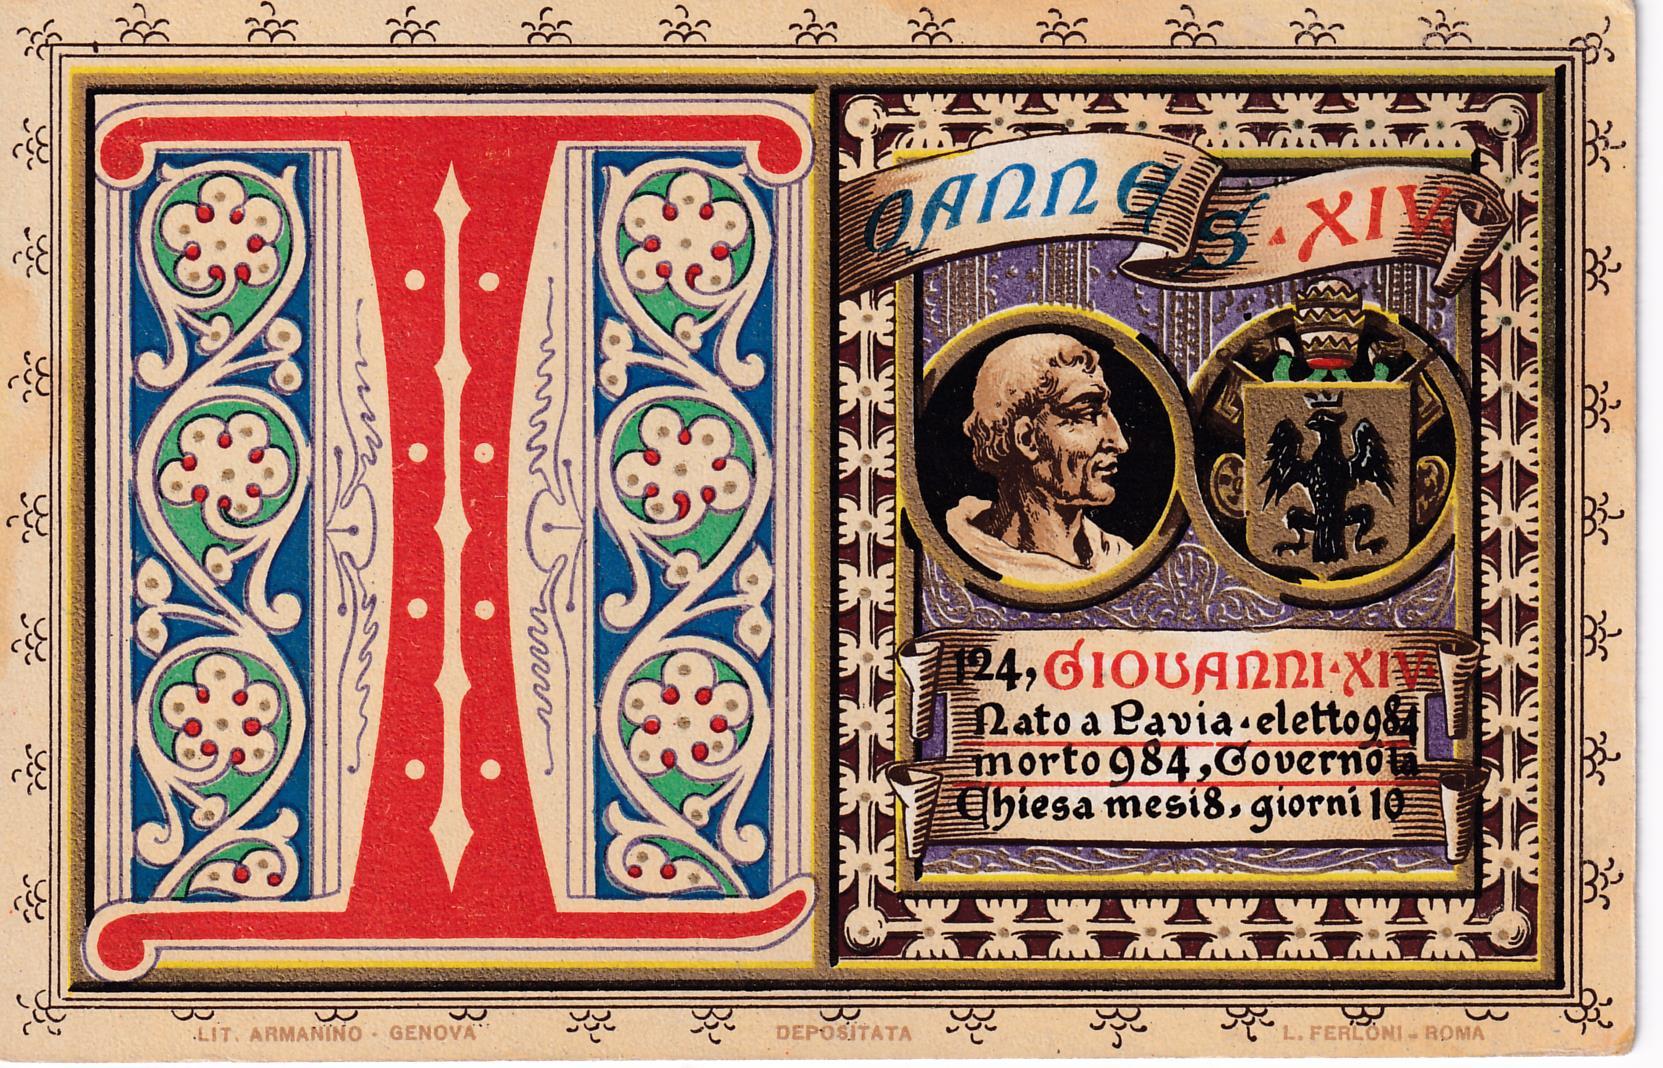 I
OANNES · XIV
124, GIOVANNI · XIV
Nato a Pavia · eletto 984
morto 984, Governò la
Chiesa mesi 8, giorni 10
LIT. ARMANINO - GENOVA
DEPOSITATA
L. FERLONI - ROMA